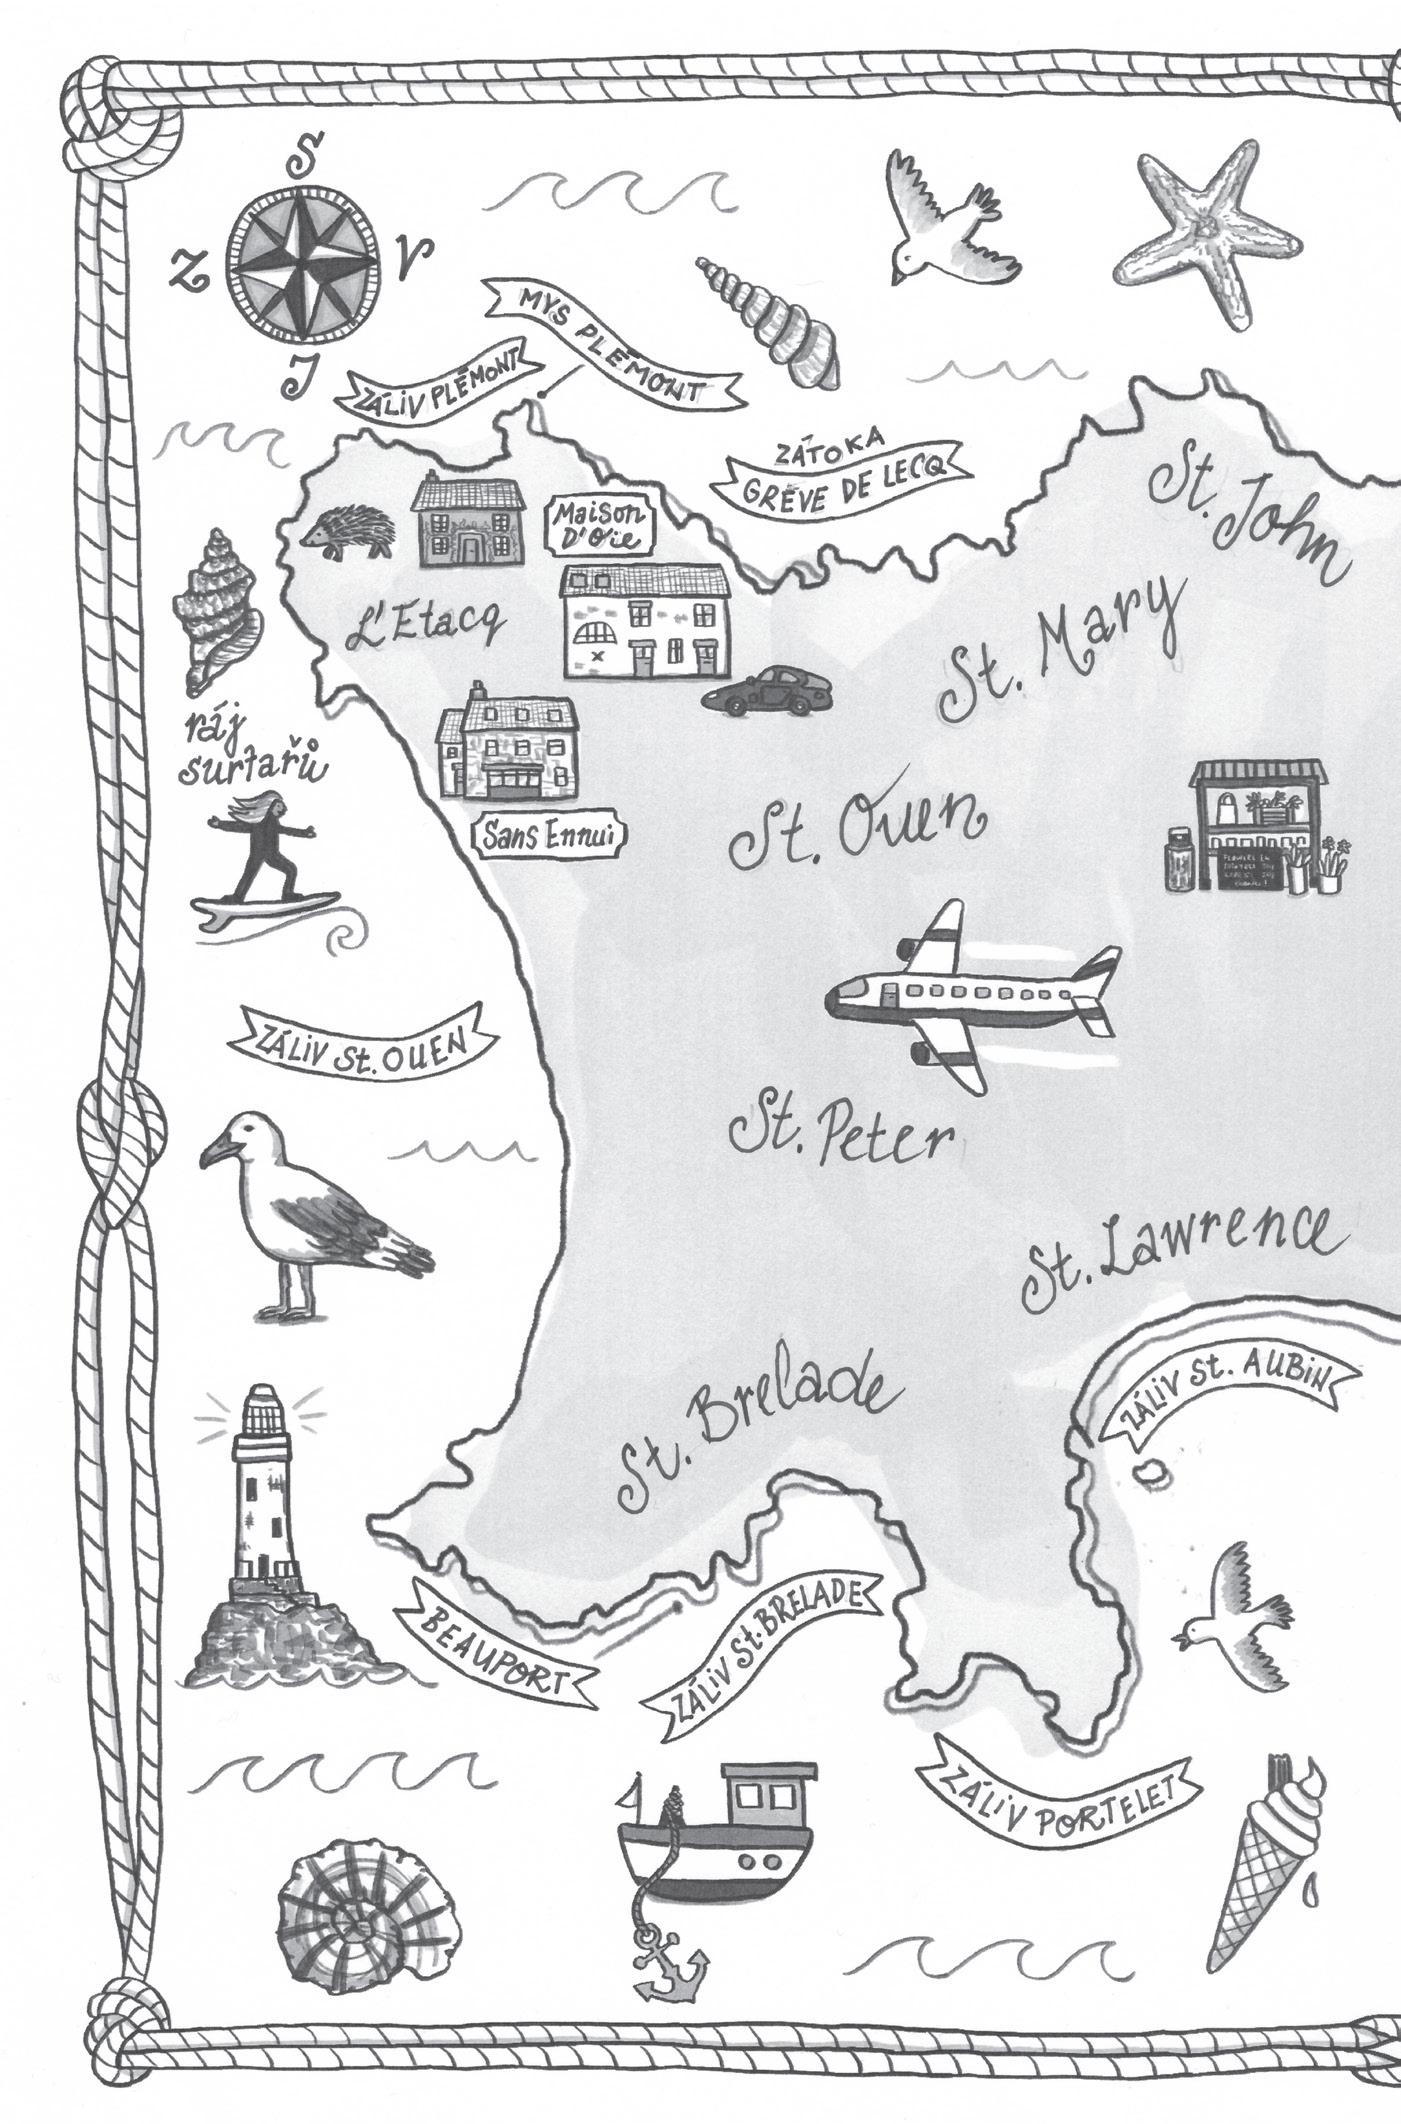 S
Z
V
J
MYS PLÉMONT
ZÁLIV PLÉMONT
ZÁTOKA
GRÈVE DE LECQ
St. John
Maison
D'Oie
L'Etacq
St. Mary
ráj
surfařů
Sans Ennui
St. Ouen
ZÁLIV St. OUEN
St. Peter
St. Lawrence
St. Brelade
ZÁLIV St. AUBIN
BEAUPORT
ZÁLIV St. BRELADE
ZÁLIV PORTELET